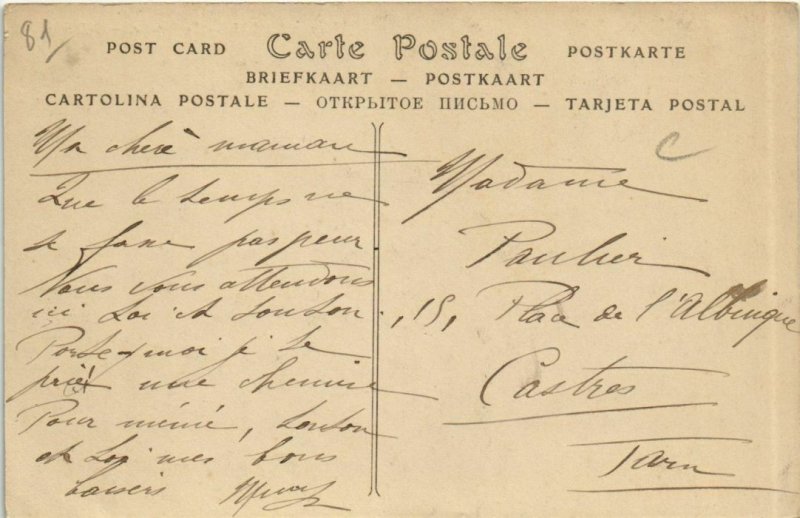 81
POST CARD Carte Postale POSTKARTE
BRIEFKAART — POSTKAART
CARTOLINA POSTALE — ОТКРЫТОЕ ПИСЬМО — TARJETA POSTAL
Ma chère maman
Que le temps ne
te fasse pas peur
Nous vous attendons
ici toi et tonton.
Porte-moi je te
prie une chemise
Pour mémé, tonton
et toi mes bons
baisers
Madame
Paulier
15, Place de l'Albinque
Castres
Tarn